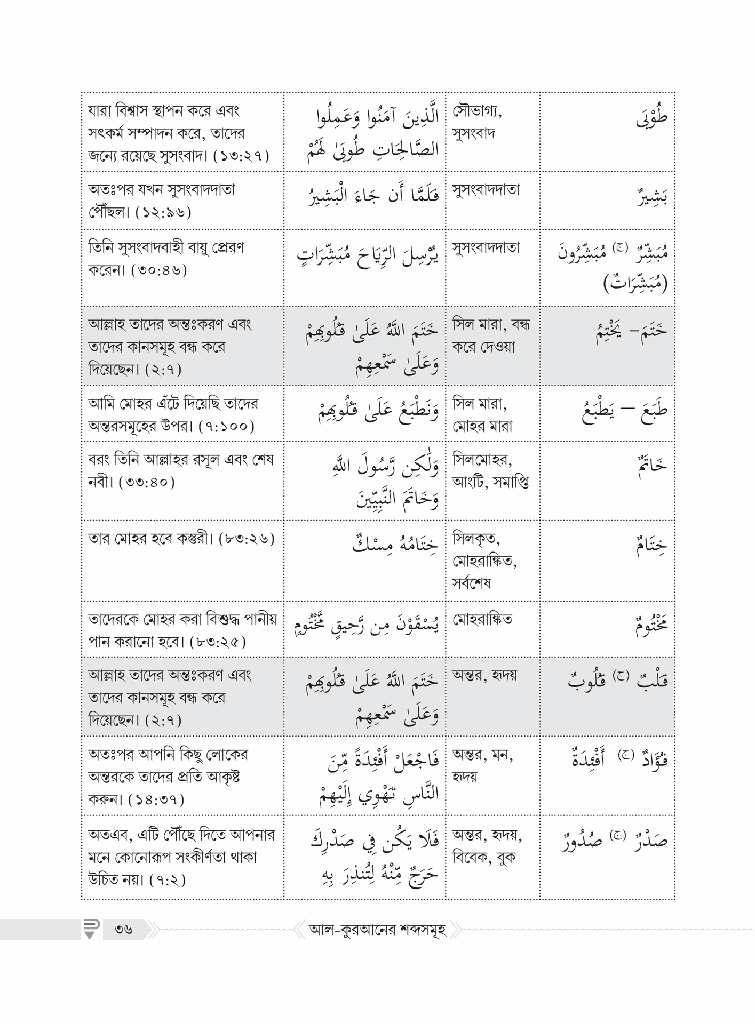 যারা বিশ্বাস স্থাপন করে এবং
সৎকর্ম সম্পাদন করে, তাদের
জন্যে রয়েছে সুসংবাদ। (১৩:২৭)
الَّذِينَ آمَنُوا وَعَمِلُوا
الصَّالِحَاتِ طُوبَىٰ لَهُمْ
সৌভাগ্য,
সুসংবাদ
طُوْبَى
অতঃপর যখন সুসংবাদদাতা
পৌঁছল। (১২:৯৬)
فَلَمَّا أَن جَاءَ الْبَشِيرُ
সুসংবাদদাতা
بَشِيرٌ
তিনি সুসংবাদবাহী বায়ু প্রেরণ
করেন। (৩০:৪৬)
يُرْسِلَ الرِّيَاحَ مُبَشِّرَاتٍ
সুসংবাদদাতা
مُبَشِّرٌ (ج) مُبَشِّرُونَ
(مُبَشِّرَاتٌ)
আল্লাহ তাদের অন্তঃকরণ এবং
তাদের কানসমূহ বন্ধ করে
দিয়েছেন। (২:৭)
خَتَمَ اللَّهُ عَلَىٰ قُلُوبِهِمْ
وَعَلَىٰ سَمْعِهِمْ
সিল মারা, বন্ধ
করে দেওয়া
خَتَمَ – يَخْتِمُ
আমি মোহর এঁটে দিয়েছি তাদের
অন্তরসমূহের উপর। (৭:১০০)
وَنَطْبَعُ عَلَىٰ قُلُوبِهِمْ
সিল মারা,
মোহর মারা
طَبَعَ – يَطْبَعُ
বরং তিনি আল্লাহর রসূল এবং শেষ
নবী। (৩৩:৪০)
وَلَٰكِن رَّسُولَ اللَّهِ
وَخَاتَمَ النَّبِيِّينَ
সিলমোহর,
আংটি, সমাপ্তি
خَاتَمٌ
তার মোহর হবে কস্তুরী। (৮৩:২৬)
خِتَامُهُ مِسْكٌ
সিলকৃত,
মোহরাঙ্কিত,
সর্বশেষ
خِتَامٌ
তাদেরকে মোহর করা বিশুদ্ধ পানীয়
পান করানো হবে। (৮৩:২৫)
يُسْقَوْنَ مِن رَّحِيقٍ مَّخْتُومٍ
মোহরাঙ্কিত
مَخْتُومٌ
আল্লাহ তাদের অন্তঃকরণ এবং
তাদের কানসমূহ বন্ধ করে
দিয়েছেন। (২:৭)
خَتَمَ اللَّهُ عَلَىٰ قُلُوبِهِمْ
وَعَلَىٰ سَمْعِهِمْ
অন্তর, হৃদয়
قَلْبٌ (ج) قُلُوبٌ
অতঃপর আপনি কিছু লোকের
অন্তরকে তাদের প্রতি আকৃষ্ট
করুন। (১৪:৩৭)
فَاجْعَلْ أَفْئِدَةً مِّنَ
النَّاسِ تَهْوِي إِلَيْهِمْ
অন্তর, মন,
হৃদয়
فُؤَادٌ (ج) أَفْئِدَةٌ
অতএব, এটি পৌঁছে দিতে আপনার
মনে কোনোরূপ সংকীর্ণতা থাকা
উচিত নয়। (৭:২)
فَلَا يَكُن فِي صَدْرِكَ
حَرَجٌ مِّنْهُ لِتُنذِرَ بِهِ
অন্তর, হৃদয়,
বিবেক, বুক
صَدْرٌ (ج) صُدُورٌ
৩৬
আল-কুরআনের শব্দসমূহ